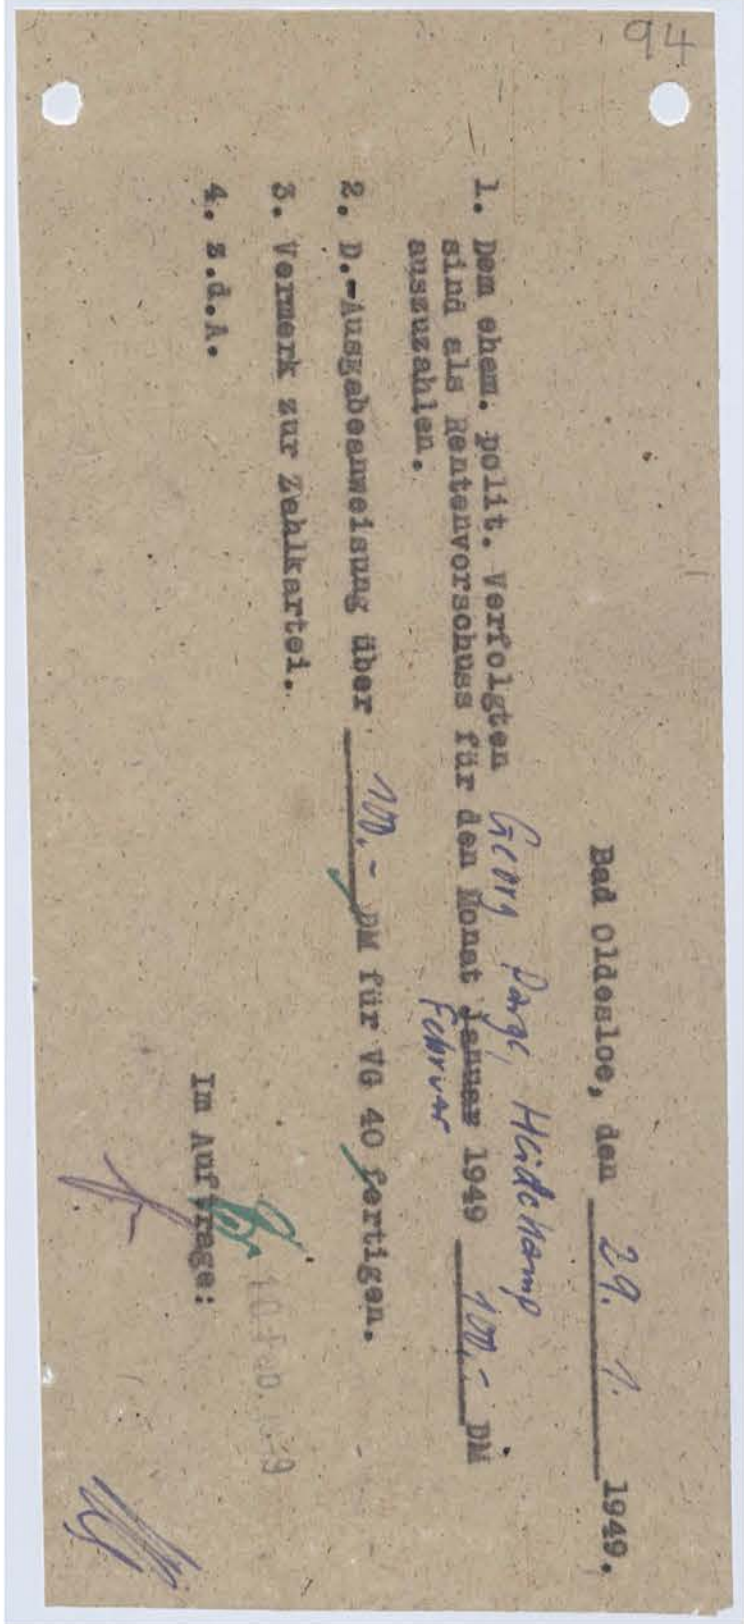 94
Bad Oldesloe, den 29. 1. 1949.
1. Dem ehem. polit. Verfolgten Georg Heidekamp
sind als Rentenvorschuss für den Monat Januar 1949 100,- DM
Februar
auszuzahlen.
2. D.-Ausgabeanweisung über 100,- DM für VG 40 fertigen.
3. Vermerk zur Zahlkartei.
10. Feb.
4. z.d.A.
Im Auftrage: